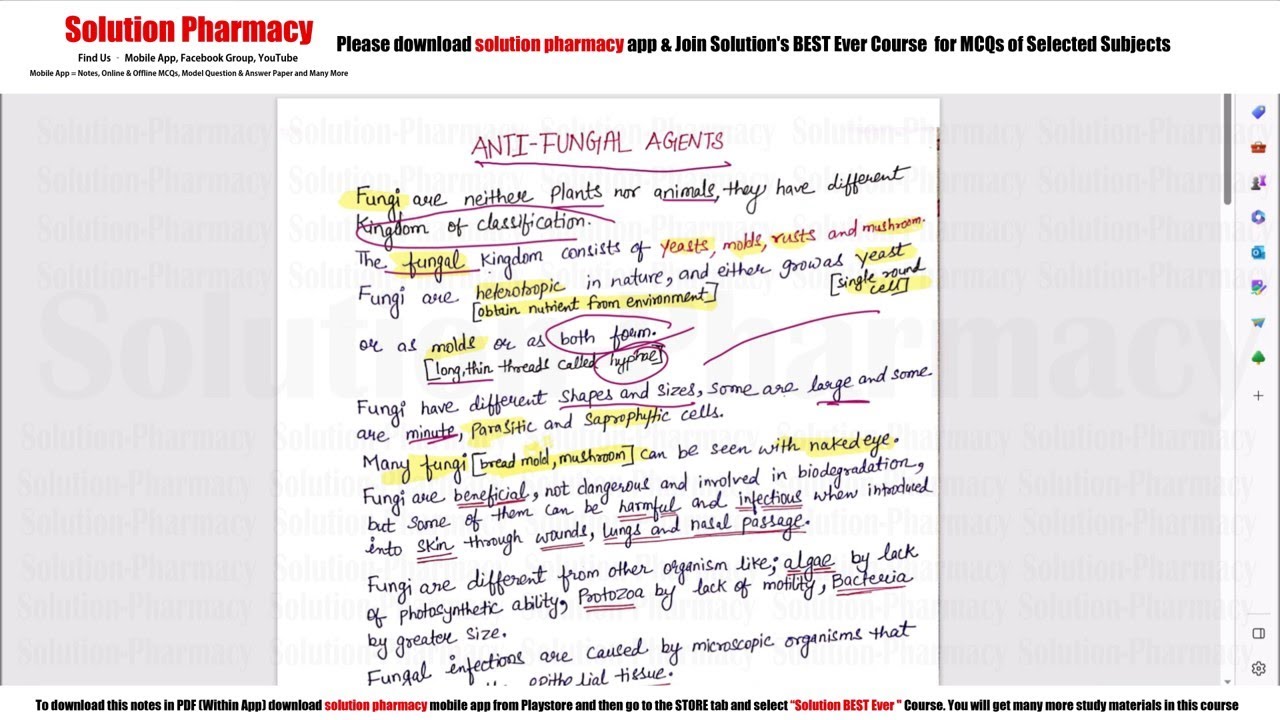 Solution Pharmacy
Find Us - Mobile App, Facebook Group, YouTube
Mobile App = Notes, Online & Offline MCQs, Model Question & Answer Paper and Many More
Please download solution pharmacy app & Join Solution's BEST Ever Course for MCQs of Selected Subjects
ANTI-FUNGIAL AGENTS
Fungi are neither Plants nor animals, they have different
Kingdom of classification.
The fungal Kingdom consists of yeasts, molds, rusts and mushrom.
Fungi are heterotropic in nature, and either grow as yeast
[obtain nutrient from environment] [single round cell]
or as molds or as both form.
[long, thin threads called hyphae]
Fungi have different shapes and sizes, some are large and some
are minute, Parasitic and Saprophytic cells.
Many fungi [bread mold, mushroom] can be seen with naked eye.
Fungi are beneficial, not dangerous and involved in biodegradation,
but some of them can be harmful and infectious when introduced
into skin through wounds, lungs and nasal passage.
Fungi are different from other organism like; algae by lack
of Photosynthetic ability; Protozoa by lack of motility, Bacteria
by greater size.
Fungal infections are caused by microscopic organisms that
the epithelial tissue.
Solution-Pharmacy
Solution Pharmacy
To download this notes in PDF (Within App) download solution pharmacy mobile app from Playstore and then go to the STORE tab and select "Solution BEST Ever " Course. You will get many more study materials in this course